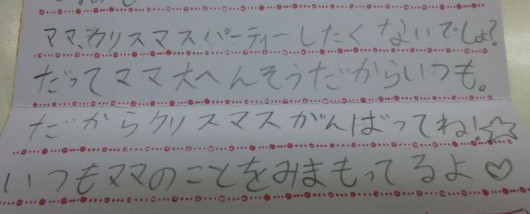 ママ、カリスマスパーティーしたくないでしょ?
だってママ大へんそうだからいつも。
だからクリスマスがんばってね!☆☆
いつもママのことをみまもってるよ♡